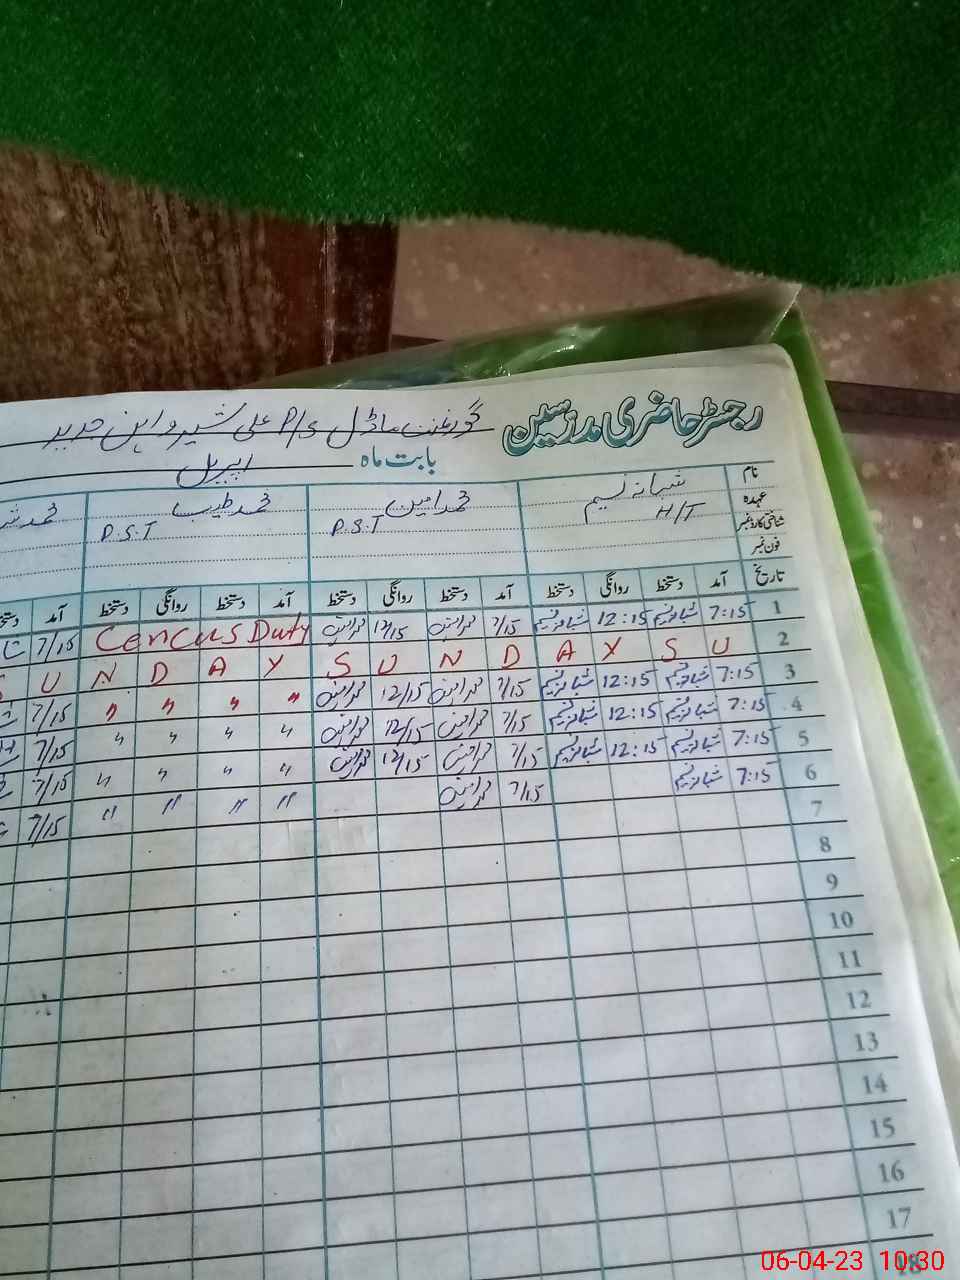 رجسٹر حاضری مدرسین گورنمنٹ ماڈل P/S علی شیر واہن جدید
بابت ماہ اپریل
نام شبانہ نسیم محمد امین محمد طیب
عہدہ H/T P.S.T P.S.T
شناختی کارڈ نمبر
فون نمبر
تاریخ آمد دستخط روانگی دستخط آمد دستخط روانگی دستخط آمد دستخط روانگی دستخط آمد
1 7:15 شبانہ نسیم 12:15 شبانہ نسیم 7/15 محمد امین 12/15 محمد امین Cencus Duty 7/15
2 S U N D A Y S U N D A Y S U
3 7:15 شبانہ نسیم 12:15 شبانہ نسیم 7/15 محمد امین 12/15 محمد امین " " " " 7/15
4 7:15 شبانہ نسیم 12:15 شبانہ نسیم 7/15 محمد امین 12/15 محمد امین " " " " 7/15
5 7:15 شبانہ نسیم 12:15 شبانہ نسیم 7/15 محمد امین 12/15 محمد امین " " " " 7/15
6 7:15 شبانہ نسیم 7/15 محمد امین " " " " 7/15
7
8
9
10
11
12
13
14
15
16
17
18
06-04-23 10:30